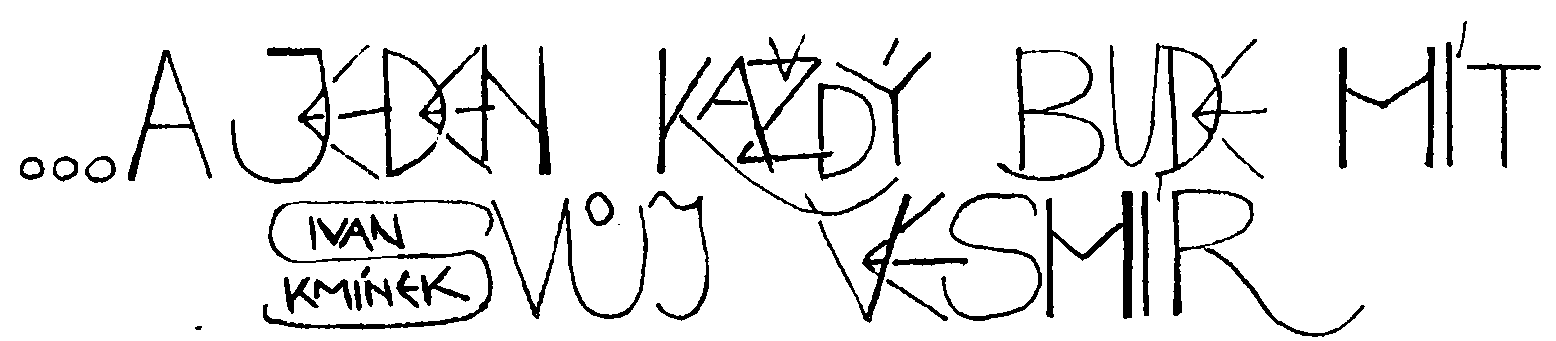 ...A JEDEN KAŽDÝ BUDE MÍT
SVŮJ VESMÍR
IVAN
KMÍNEK